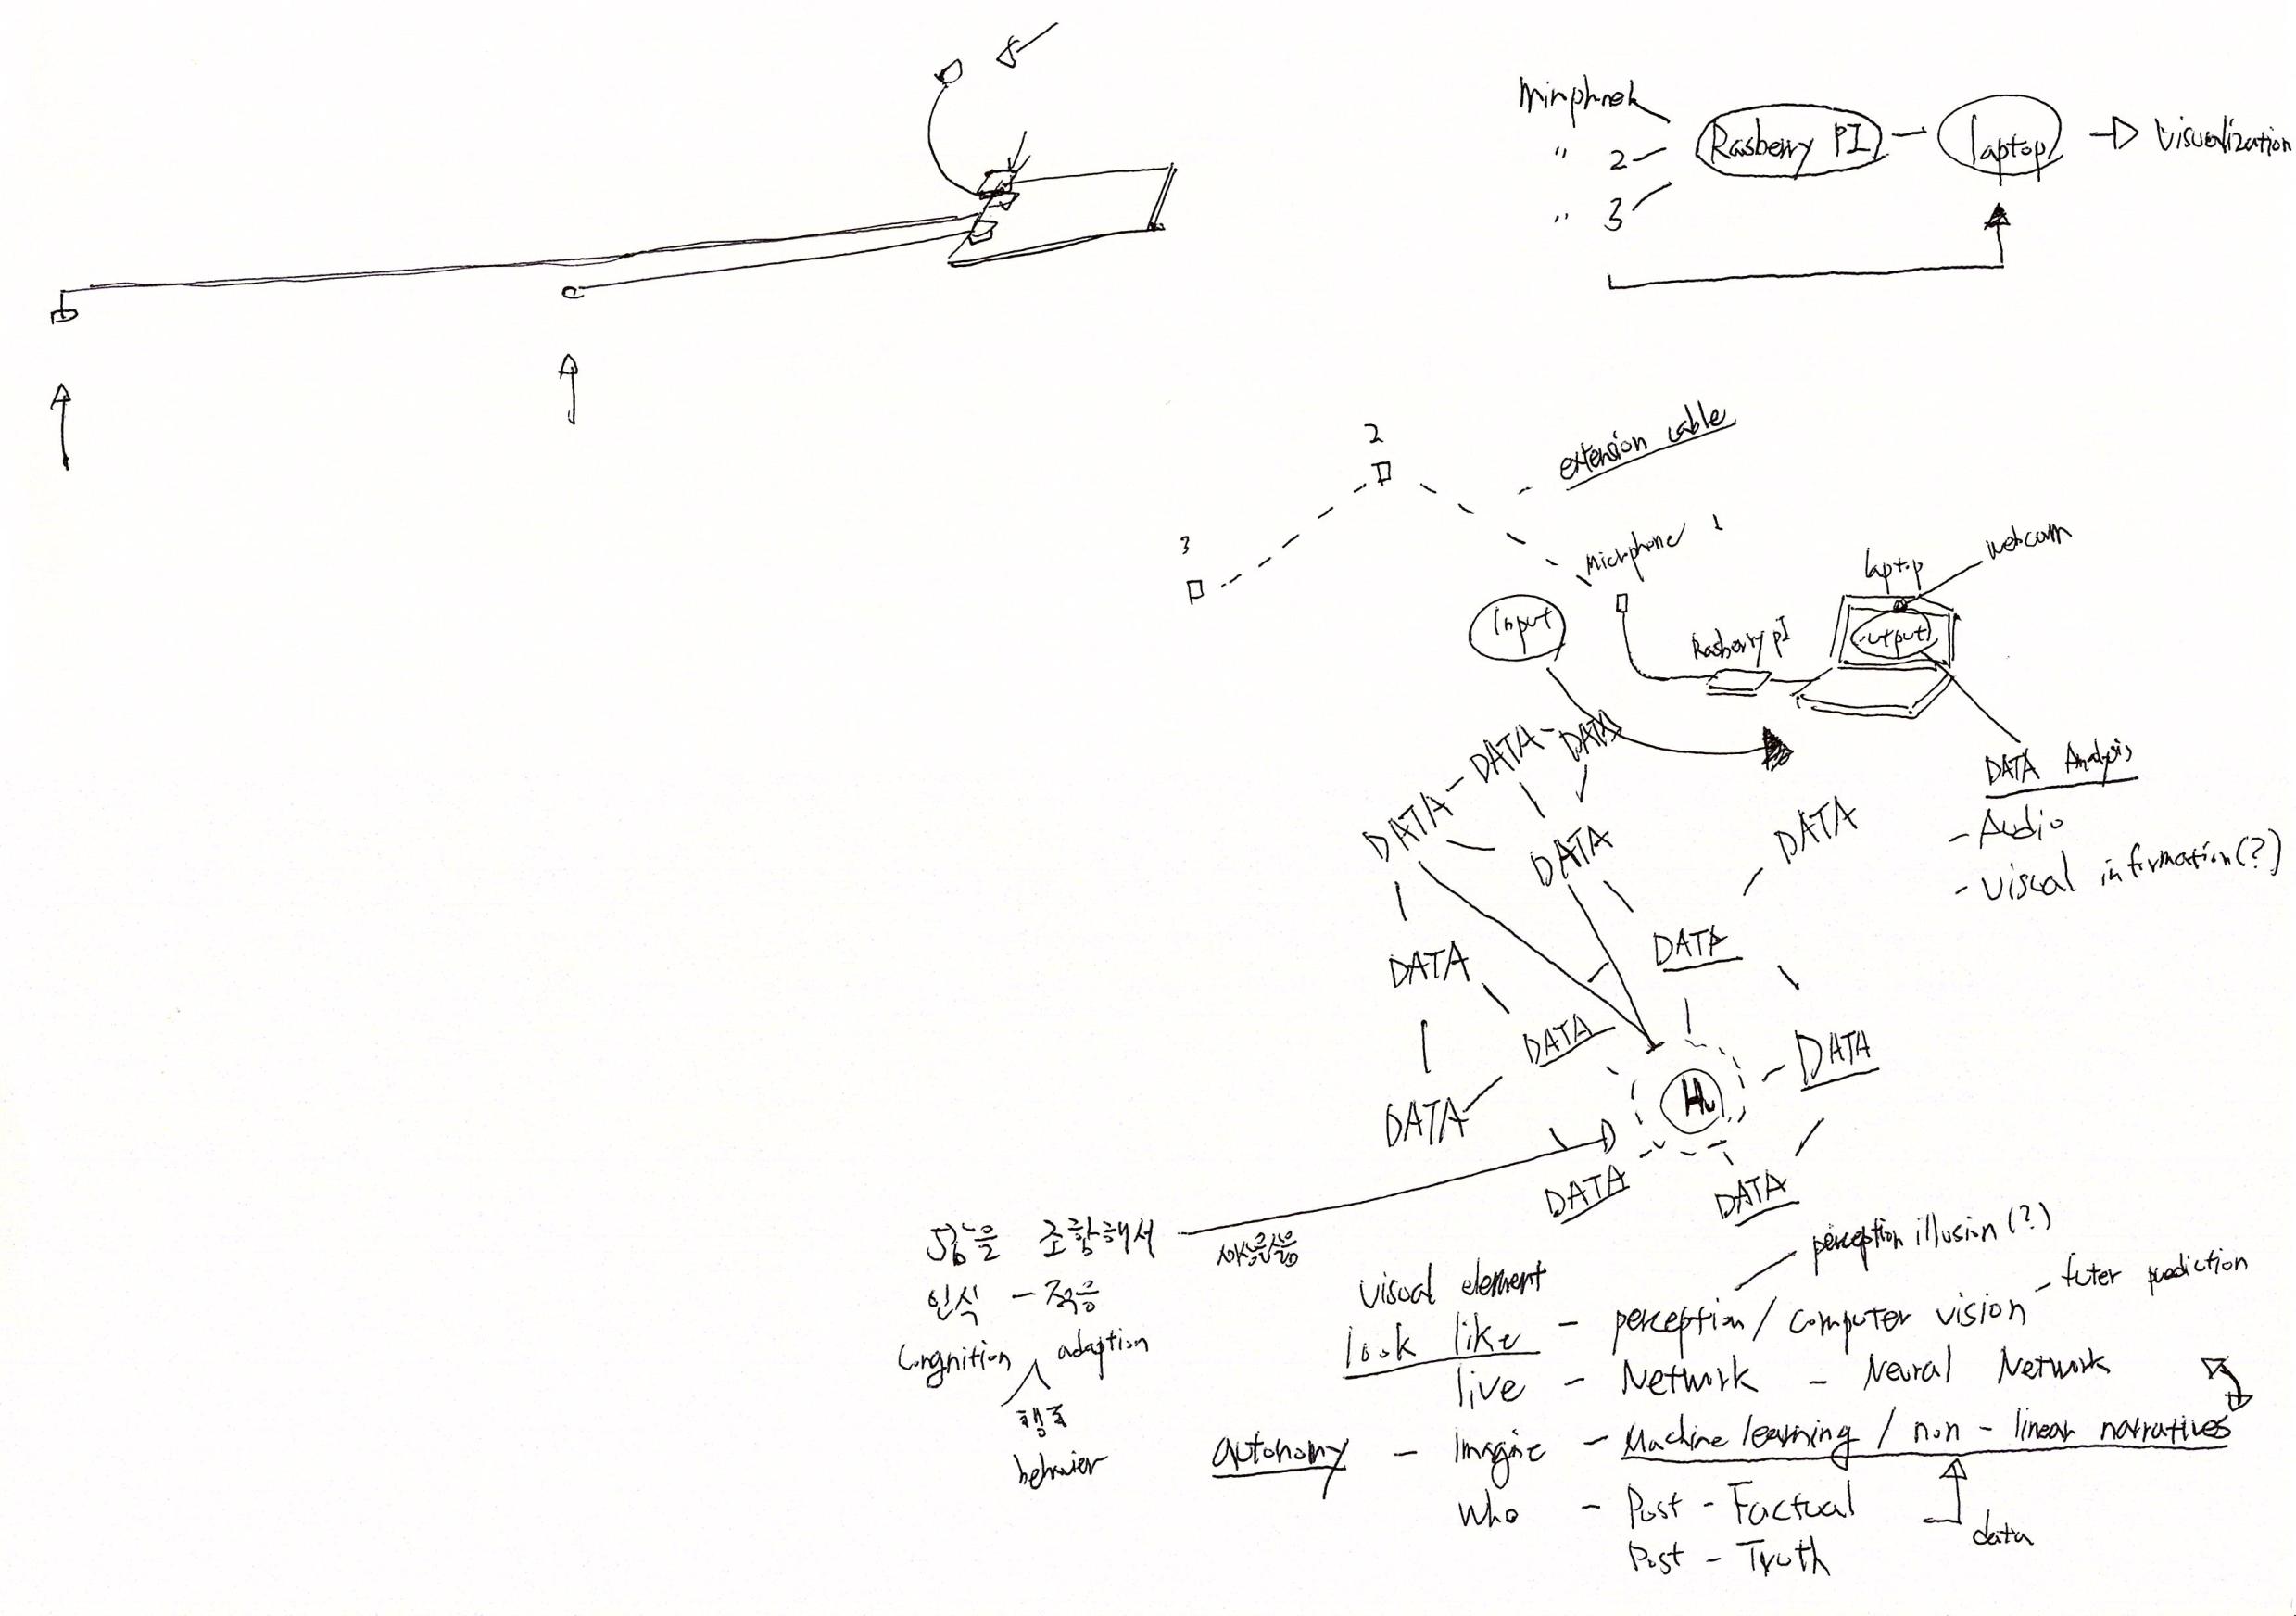 Rasberry PI
laptop
visualization
" 2
" 3
2
extension cable
3
Microphone 1
laptop
webcam
Input
Rasberry pI
output
DATA - DATA - DATA
DATA
DATA
DATA Analysis
- Audio
- visual information(?)
DATA
DATA
DATA
DATA
DATA
Hu
DATA
DATA
조합해서
인식 - 적응
Corgnition
adaption
행동
behavier
perception illusion (?)
visual element
look like - perception / computer vision - futer prediction
live - Network - Neural Network
autonomy - Imagine - Machine learning / non - linear narratives
who - Post - Factual
Post - Truth
data